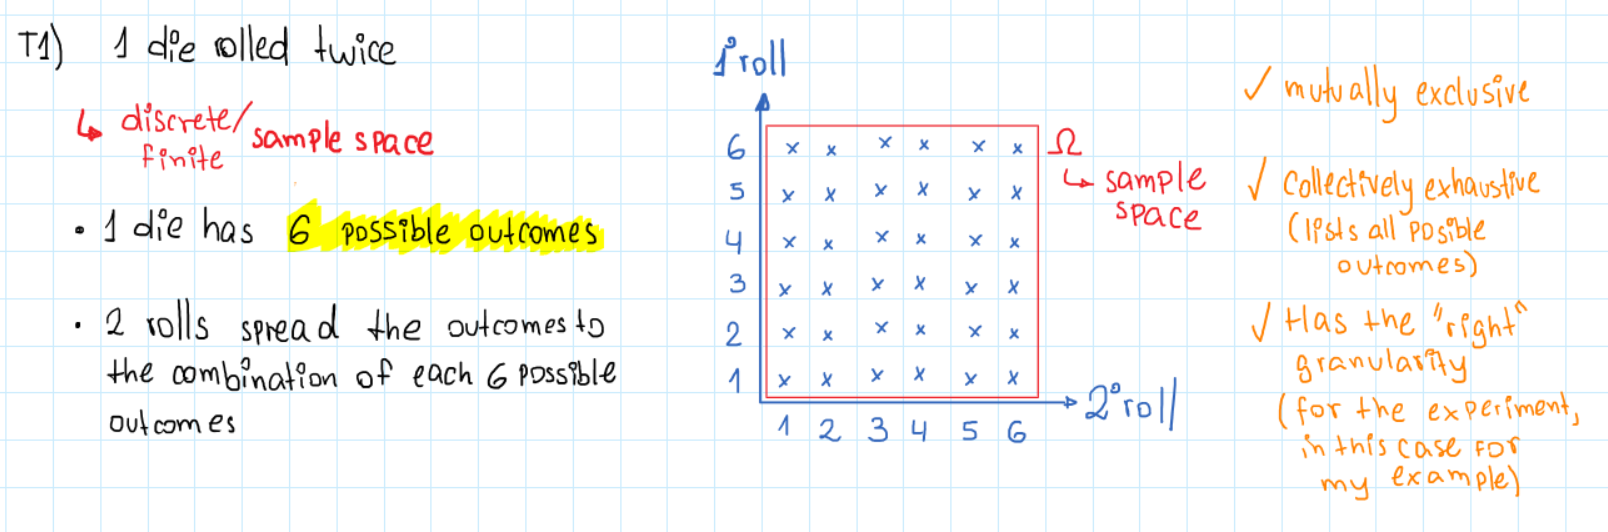 T1) 1 die rolled twice
↳ discrete/
finite
sample space
• 1 die has 6 possible outcomes
• 2 rolls spread the outcomes to
the combination of each 6 possible
outcomes
1° roll
6
5
4
3
2
1
1 2 3 4 5 6
2° roll
Ω
↳ sample
space
✓ mutually exclusive
✓ Collectively exhaustive
(lists all posible
outcomes)
✓ Has the "right"
granularity
(for the experiment,
in this case for
my example)